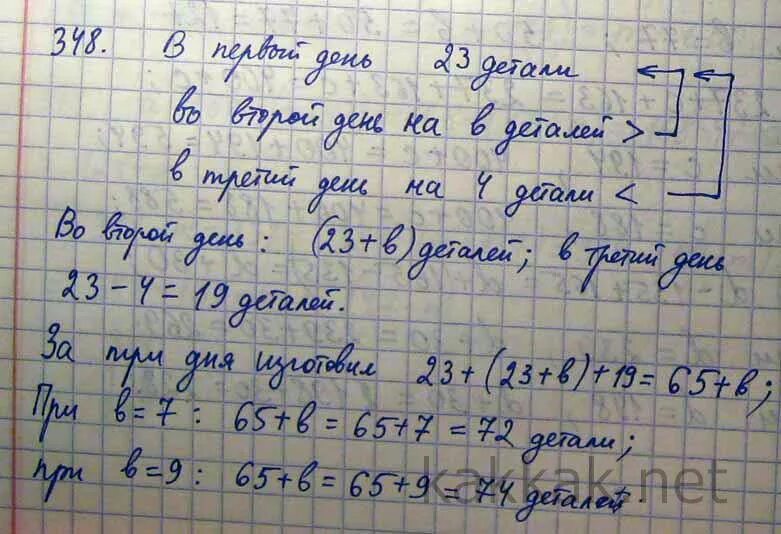 348. В первый день 23 детали
Во второй день на в деталей >
в третий день на 4 детали <
Во второй день: (23+в) деталей; в третий день
23-4=19 деталей.
За три дня изготовил 23+(23+в)+19=65+в;
При в=7: 65+в=65+7=72 детали;
при в=9: 65+в=65+9=74 деталей
kakkak.net